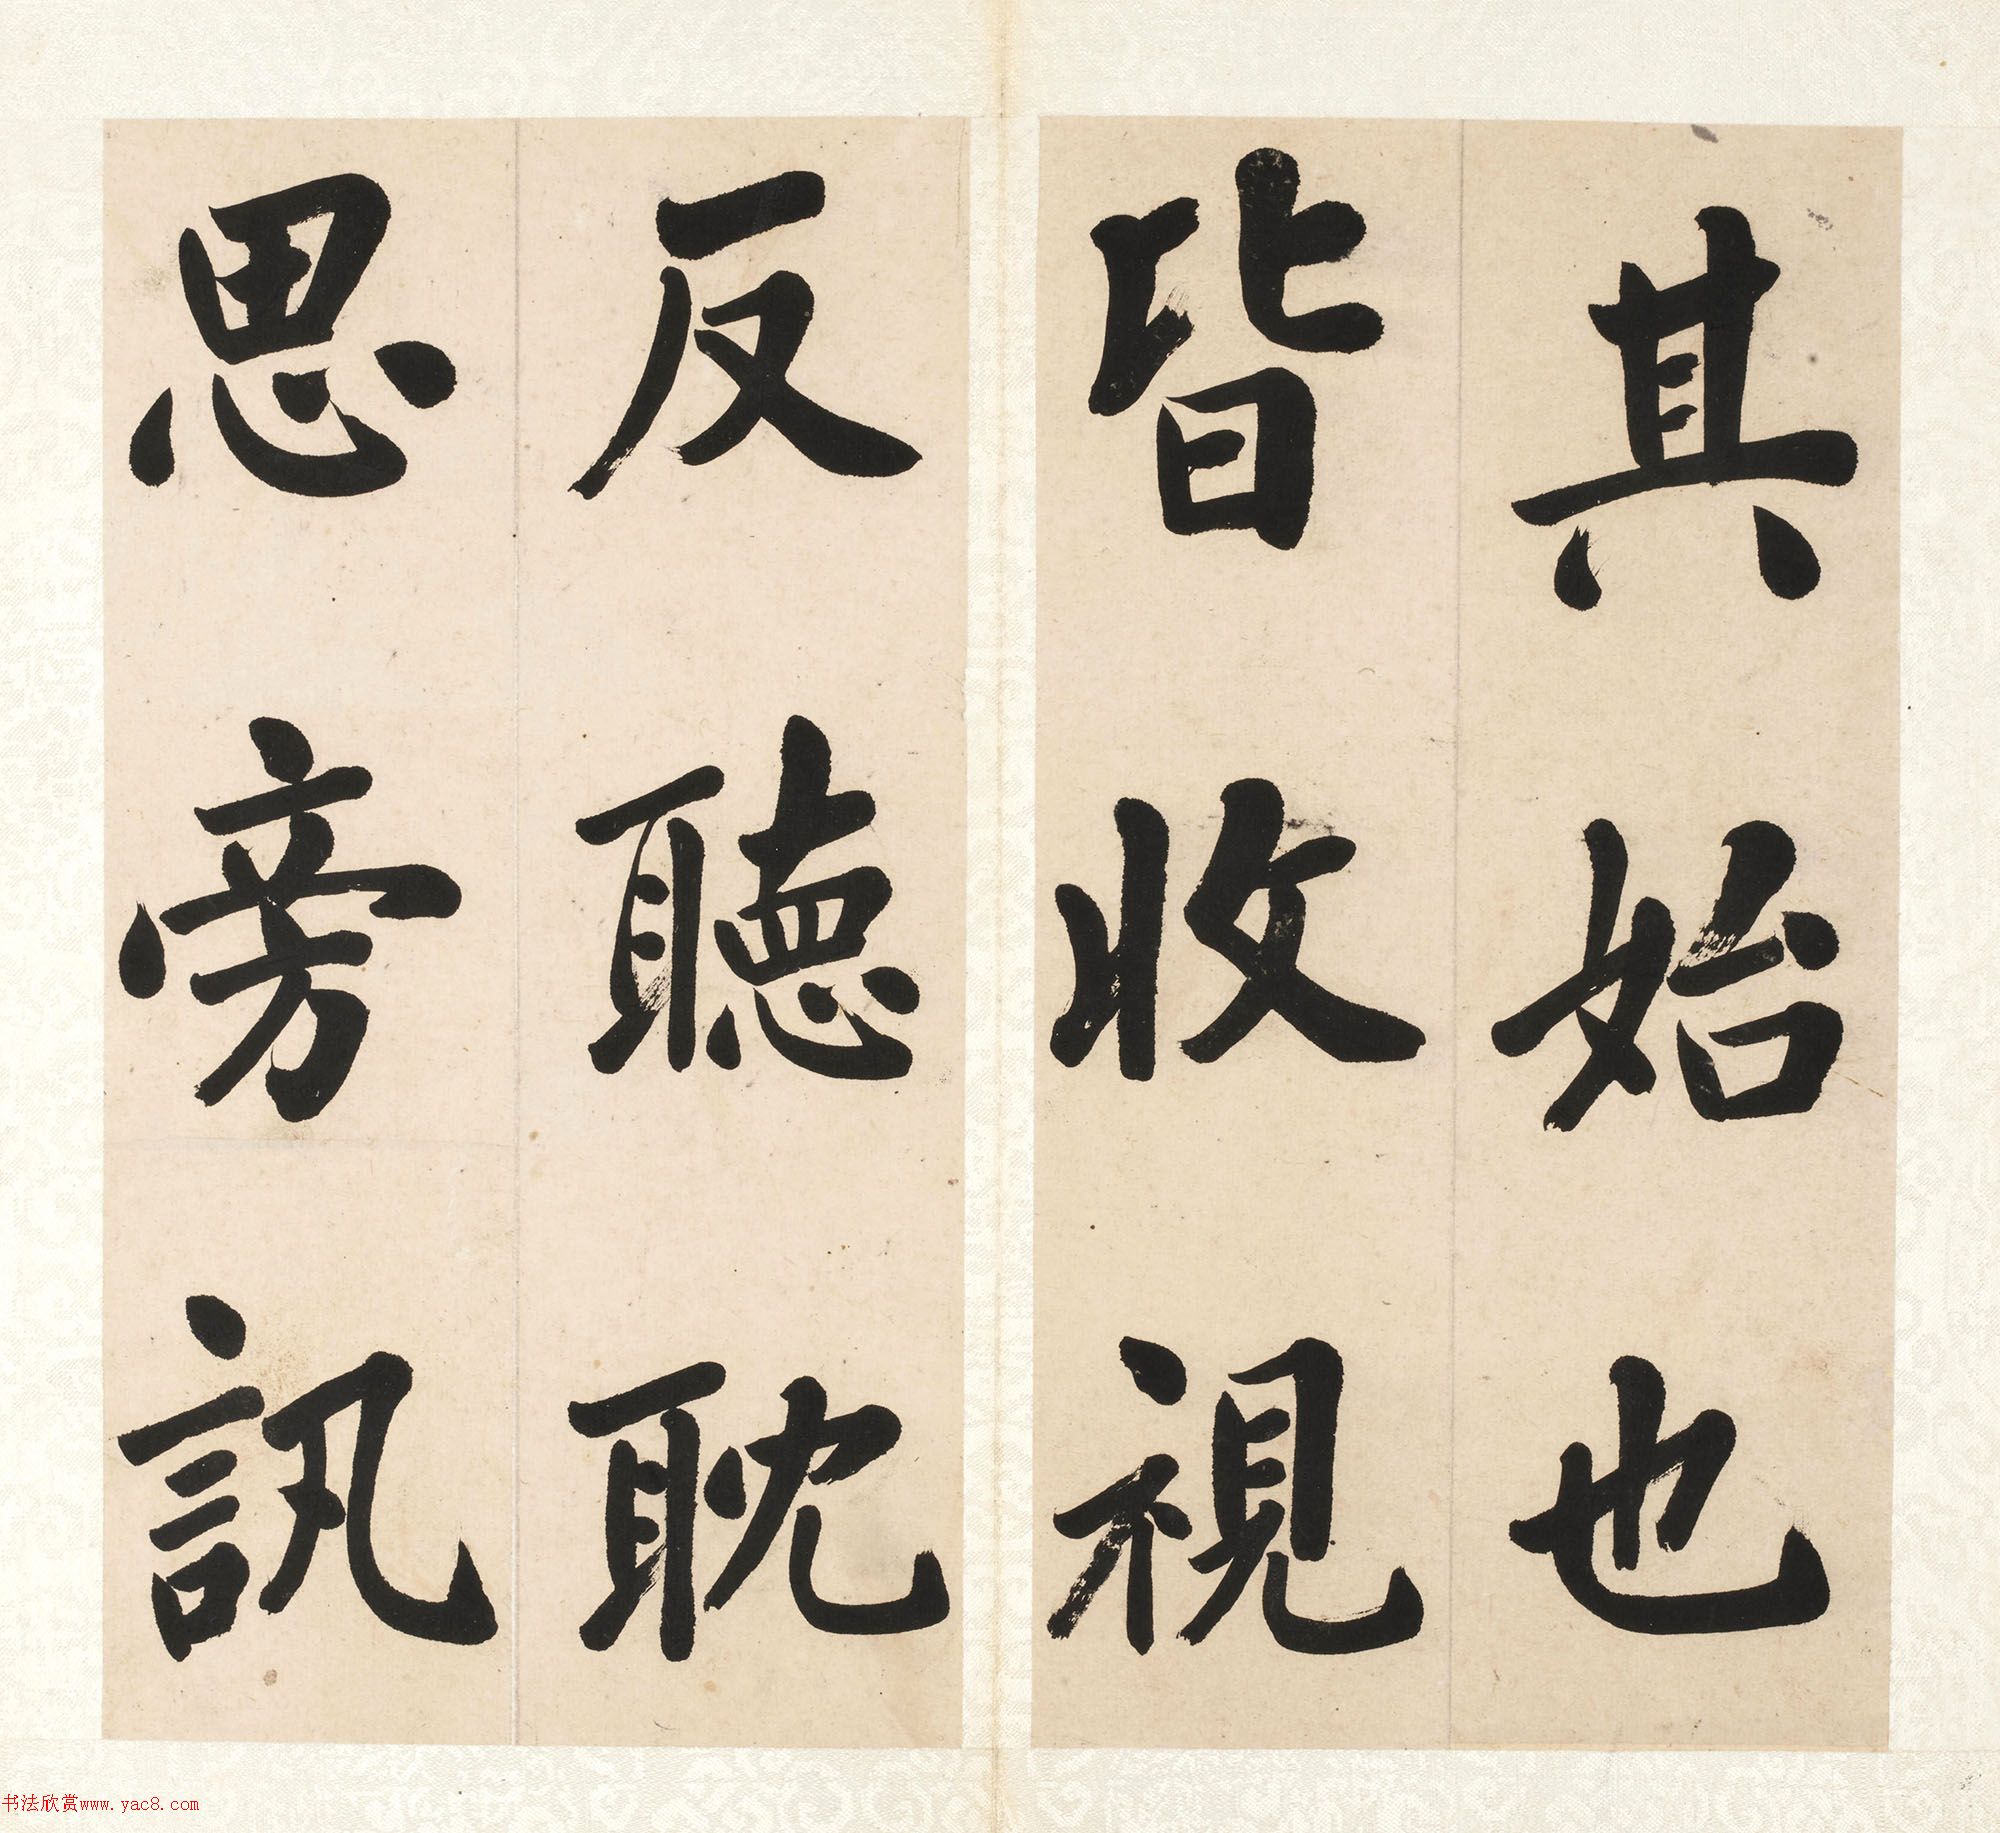 其始也
皆收視
反聽耽
思旁訊
书法欣赏www.yac8.com